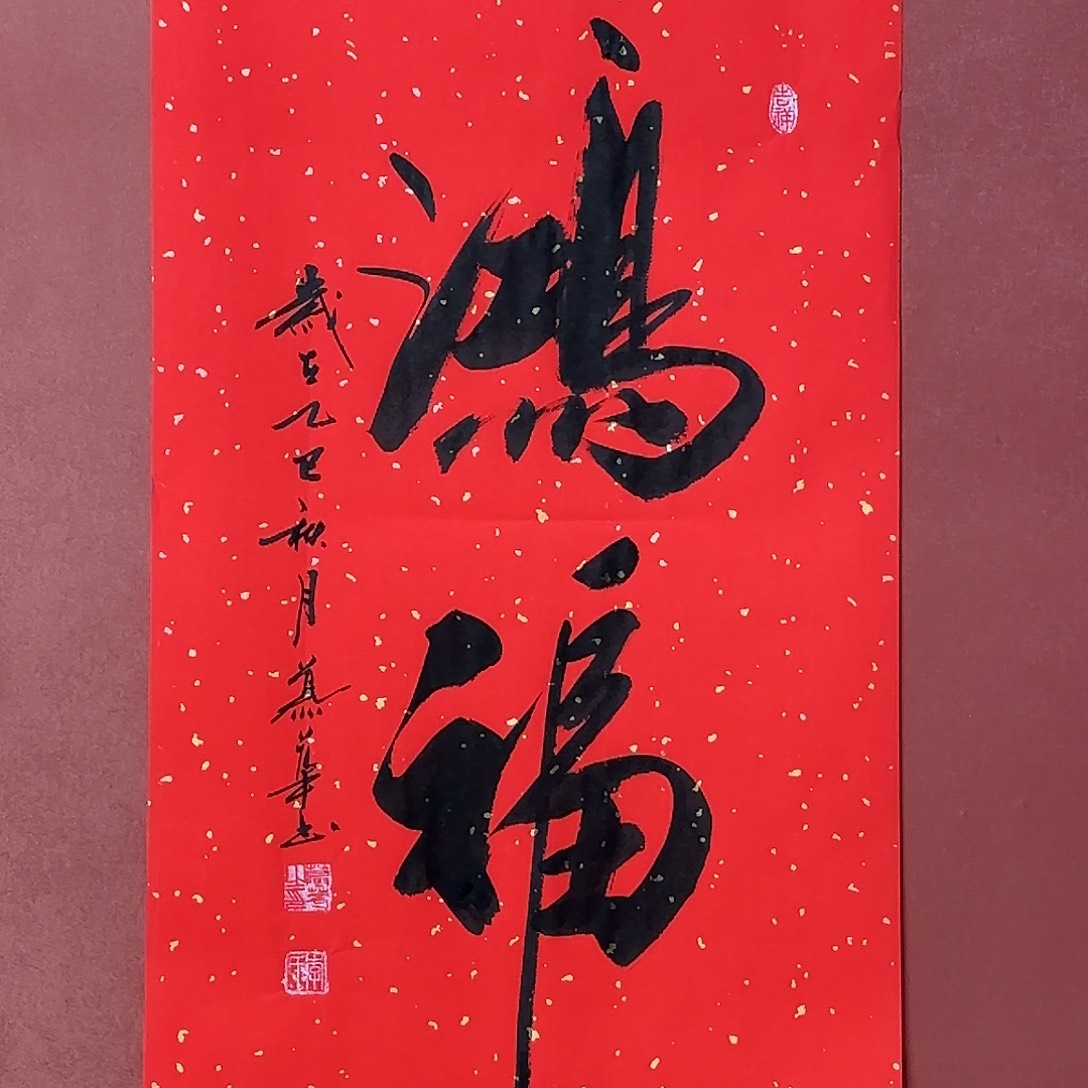 鴻福
歲在乙巳秋月燕華书